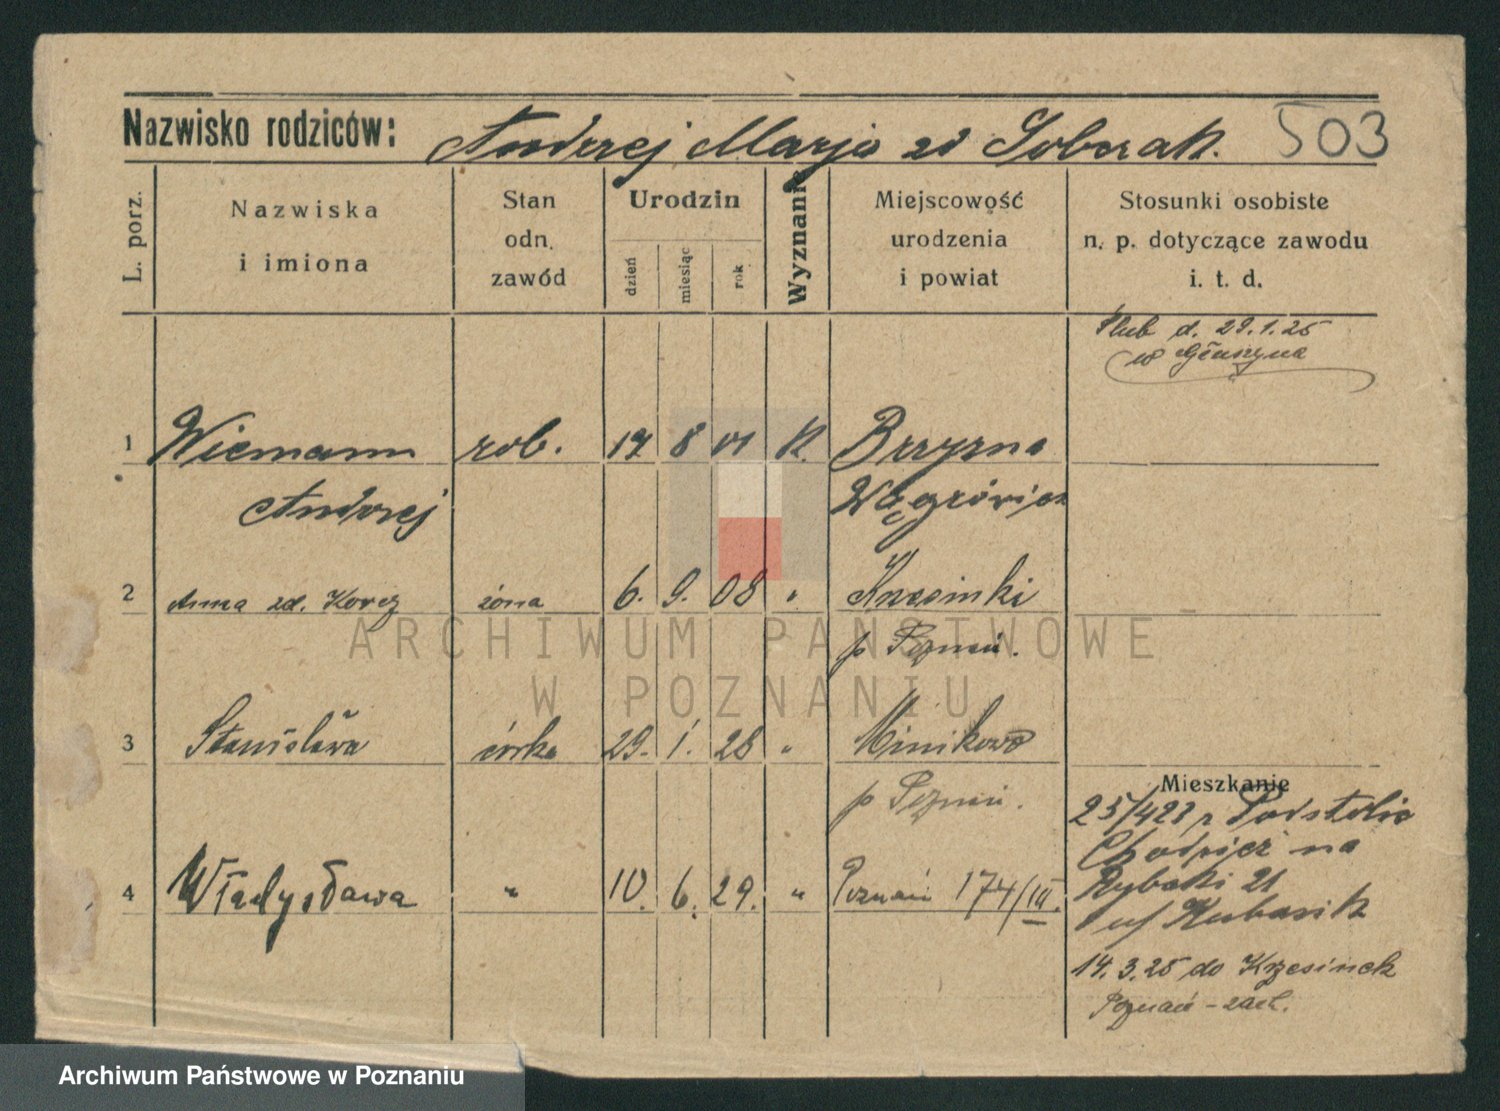 Nazwisko rodziców: Andrzej Marja zd Sobczak. 503
L. porz.
Nazwiska
i imiona
Stan
odn.
zawód
Urodzin
dzień
miesiąc
rok
Wyznanie
Miejscowość
urodzenia
i powiat
Stosunki osobiste
n. p. dotyczące zawodu
i. t. d.
ślub d. 29.1.25
w Głuszyna
1 Wiemann rob. 17 8 01 K.
Andrzej Wągrówiec
2 Anna zd. Korcz żona 6. 9. 08 " Krzesinki
p Poznań.
3 Stanisława córka 29. 1. 28 " Minikowo
p Poznań.
Mieszkanie
4 Władysława " 10. 6. 29. " Poznań 174/III.
na
Rybaki 21
14.3.25 do Krzesinek
Poznań - zach.
ARCHIWUM PAŃSTWOWE
W POZNANIU
Archiwum Państwowe w Poznaniu